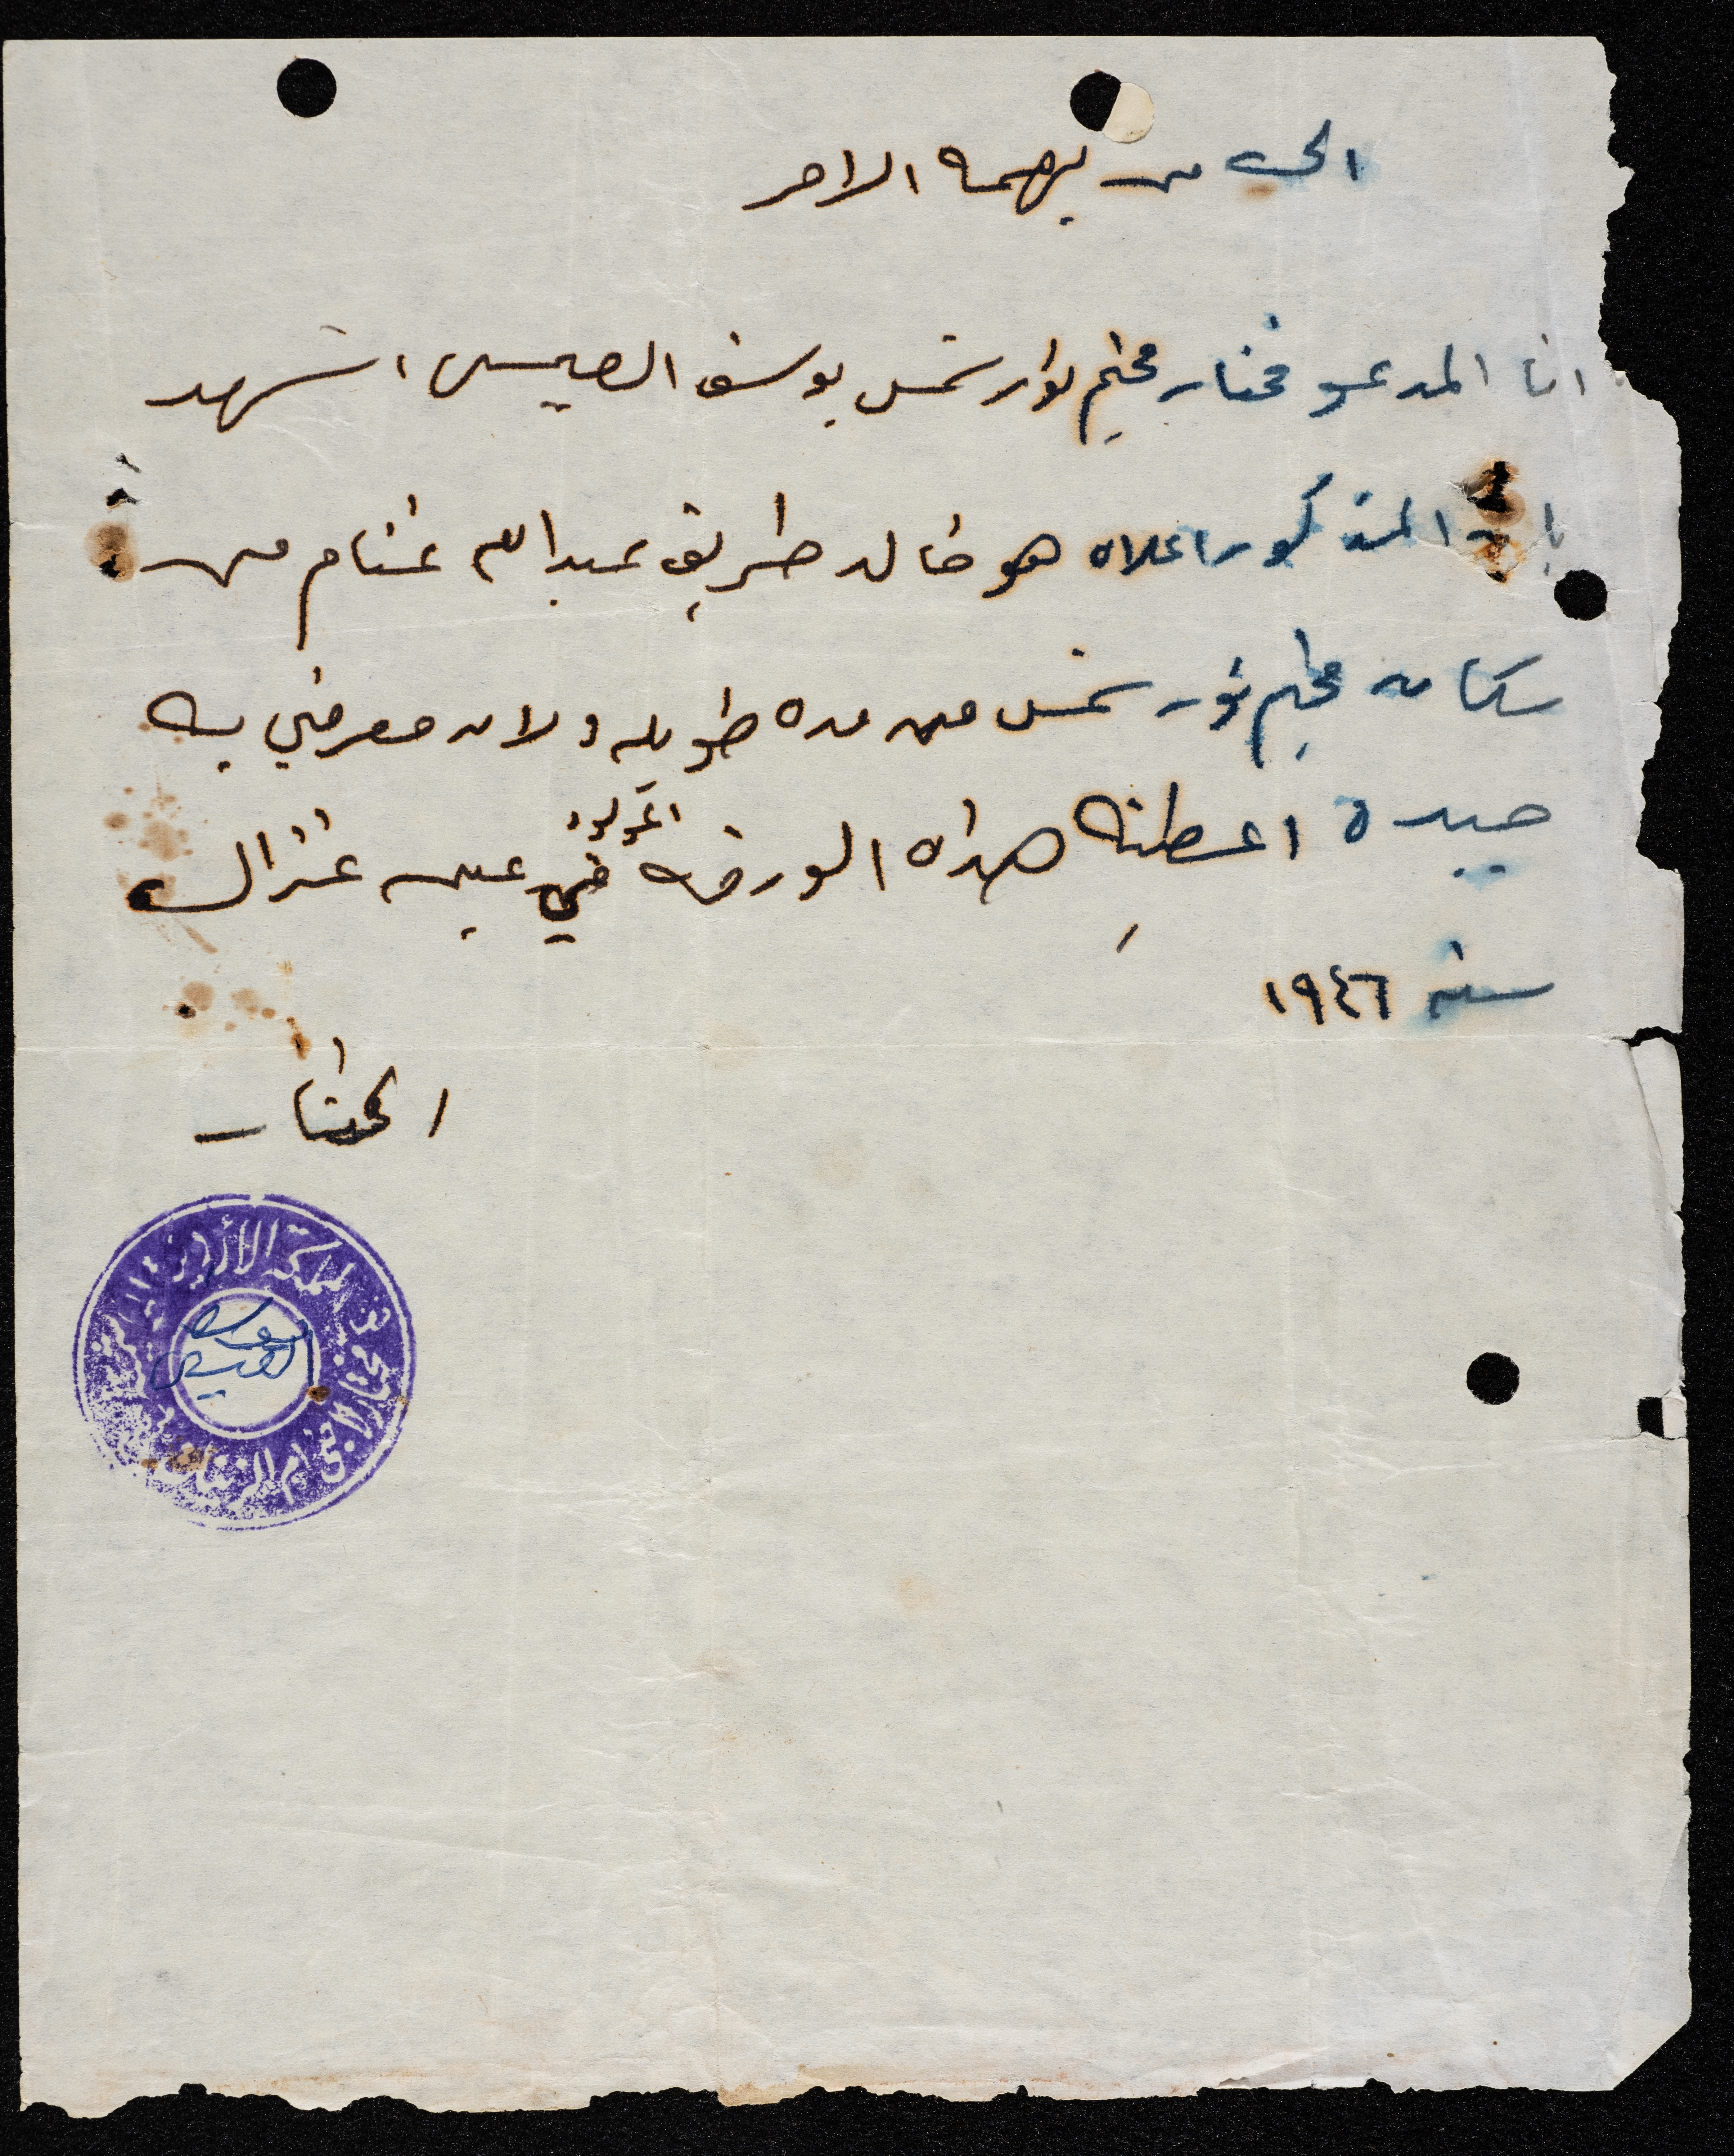 الى من يهمه الامر
انا المدعو مختار مخيم نور شمس يوسف العيسى اشهد
بان المذكور اعلاه هو خالد طريف عبدالله غنام من
سكان مخيم نور شمس من مده طويله ولان معرفتي به
جيدة اعطيته هذه الورقه
المولود
في عين غزال
سنة ١٩٤٦
المختار
المملكة الأردنية
يوسف
العيسى